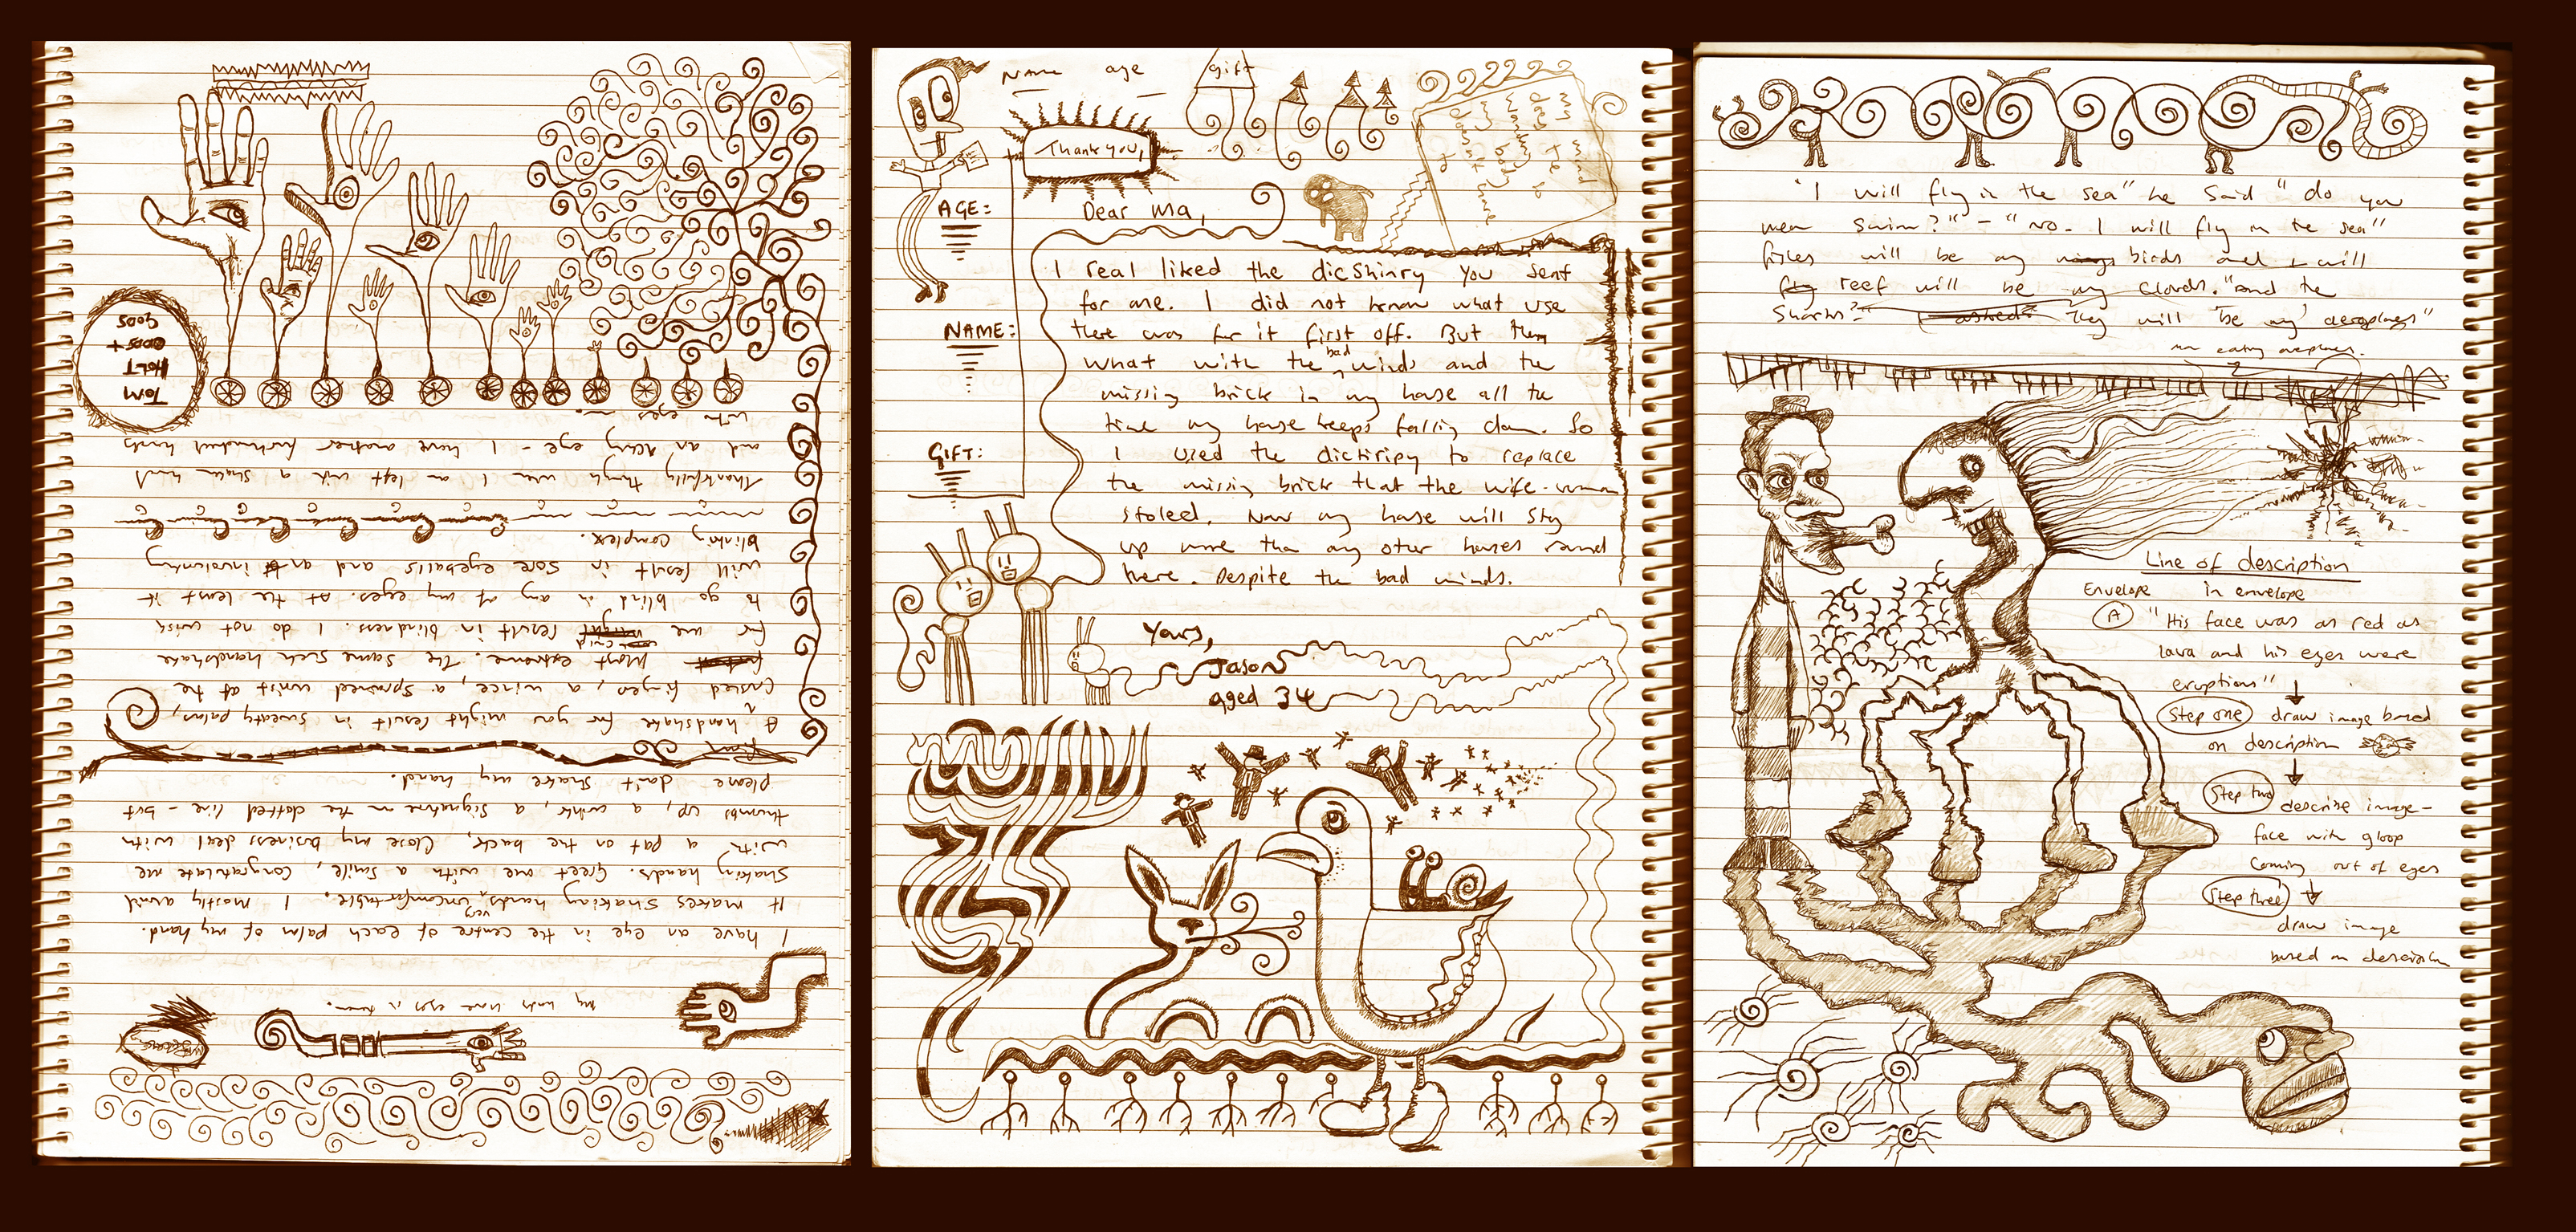 my hands have eyes in them.
I have an eye in the centre of each palm of my hand.
It makes shaking hands very uncomfortable. I mostly avoid
shaking hands. Greet me with a smile, congratulate me
with a pat on the back, close my business deal with
thumbs up, a wink, a signature on the dotted line - but
please don't shake my hand.
firm
A handshake for you might result in sweaty palms,
finger, a wince, a sprained wrist at the
most extreme. The same such handshake
for me could result in blindness. I do not wish
to go blind in any of my eyes. At the least it
will result in sore eyeballs and an involuntary
blinking complex.
Thankfully though when I am left with a shaken hand
and an achy eye - I have another hands
with eyes in.
TOM
HOLT
ODDS +
SODS
Name age gift
Thank you,
my mind
does te so
wonky
my body
doesn't have
to
AGE:
NAME:
GIFT:
Dear Ma,
I real liked the dicshinry you sent
for me. I did not know what use
there was for it first off. But then
what with the bad winds and the
missing brick in my house all the
time my house keeps falling down. So
I used the dictiripy to replace
the missing brick that the wife-woman
stoled. Now my house will sty
up more than any other houses round
here. Despite the bad winds.
Yours,
Jason
aged 34
"I will fly in the sea" he said "do you
mean swim?" - "no. I will fly in the sea"
fishes will be my wings birds and I will
fly reef will be my clouds. "and the
sharks?" I asked? They will be my aeroplanes"
man eating aeroplanes.
Line of description
Envelope in envelope
A "His face was as red as
lava and his eyes were
eruptions"
Step one draw image based
on description
Step two describe image -
face with gloop
coming out of eyes
Step three
draw image
based on description